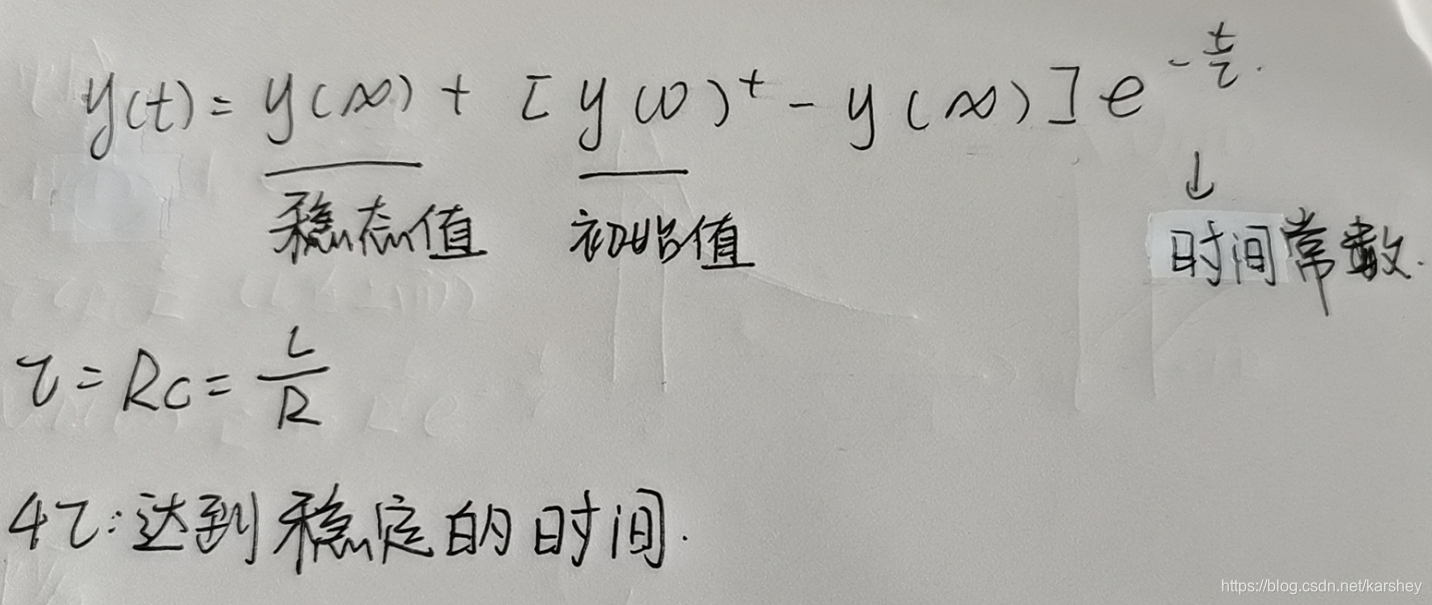 y(t) = y(∞) + [y(0)⁺ - y(∞)] e^{-t/τ}.
稳态值 初始值 ↓
时间常数.
τ = RC = L/R
4τ: 达到稳定的时间.
https://blog.csdn.net/karshey